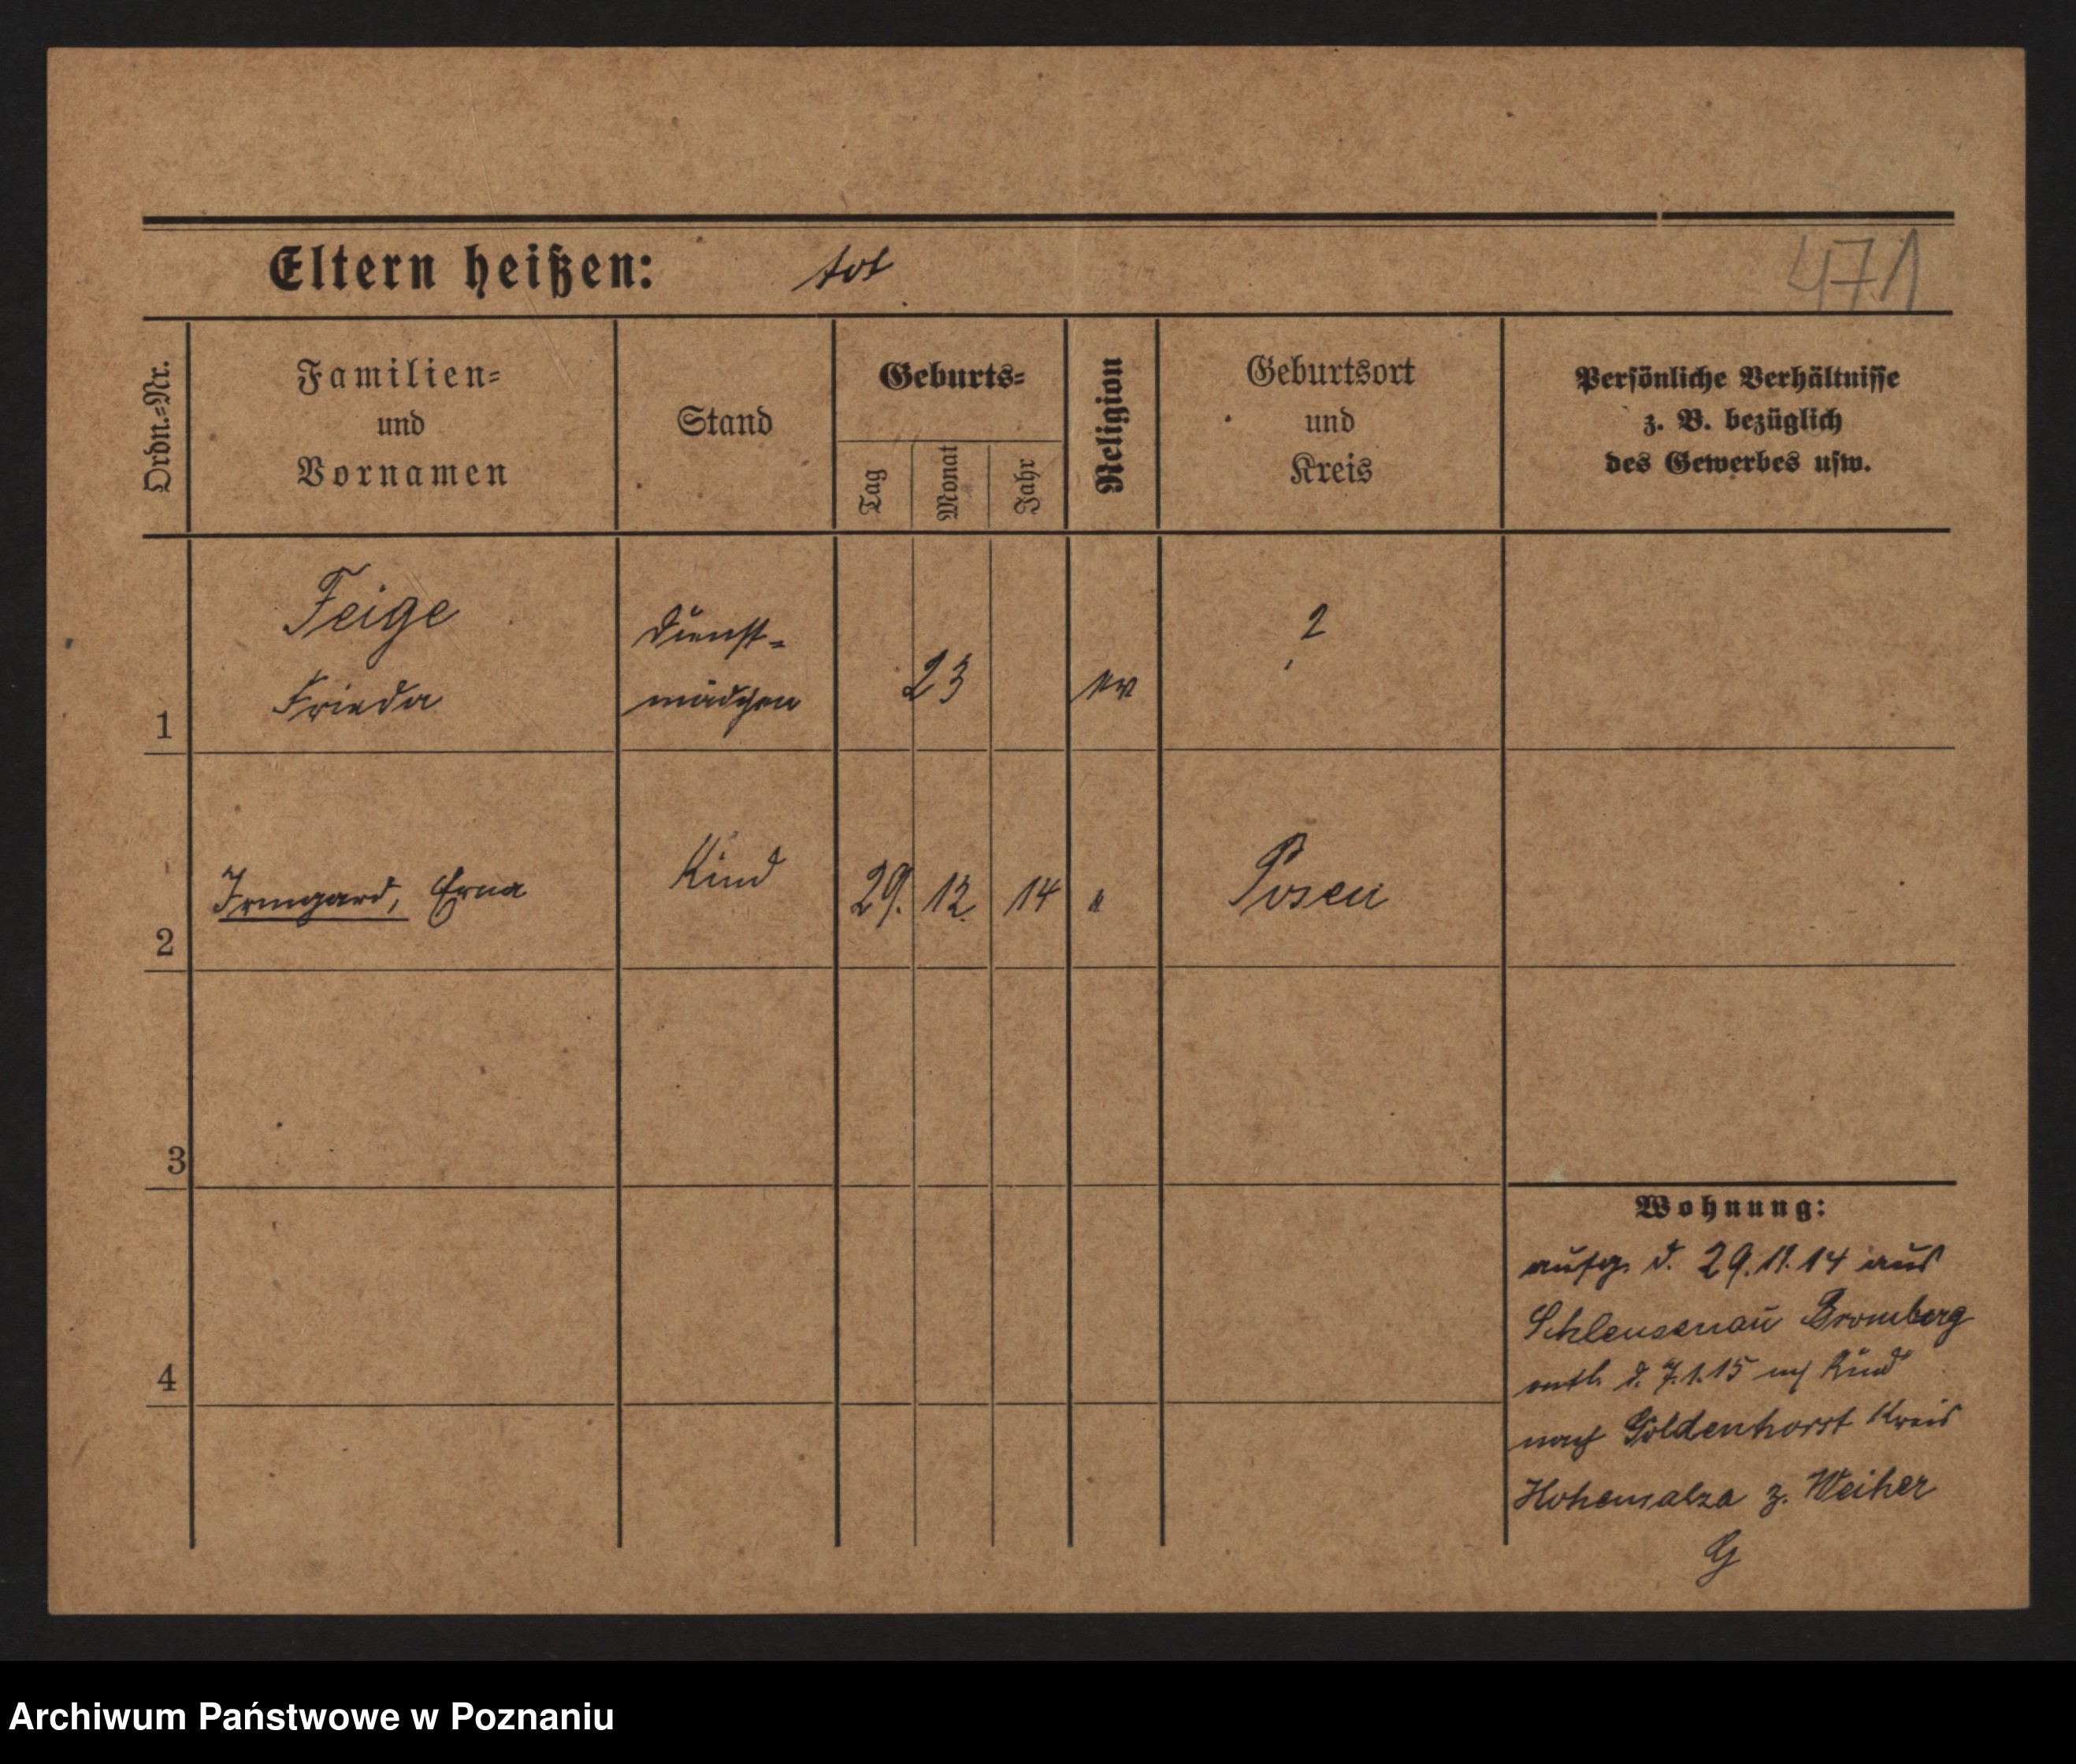 Eltern heißen: tot
471
Ordn.=Nr.
Familien=
und
Vornamen
Stand
Geburts=
Tag
Monat
Jahr
Religion
Geburtsort
und
Kreis
Persönliche Verhältnisse
z. B. bezüglich
des Gewerbes usw.
1
Feige
Frieda
Dienst=
mädchen
23
ev
?
2
Irmgard, Erna
Kind
29. 12. 14
"
Posen
3
4
Wohnung:
d. 29.11.14 aus
Schleusenau Bromberg
d. 7.1.15 m Kind
nach Goldenhorst Kreis
Hohensalza z. Weiher
G
Archiwum Państwowe w Poznaniu